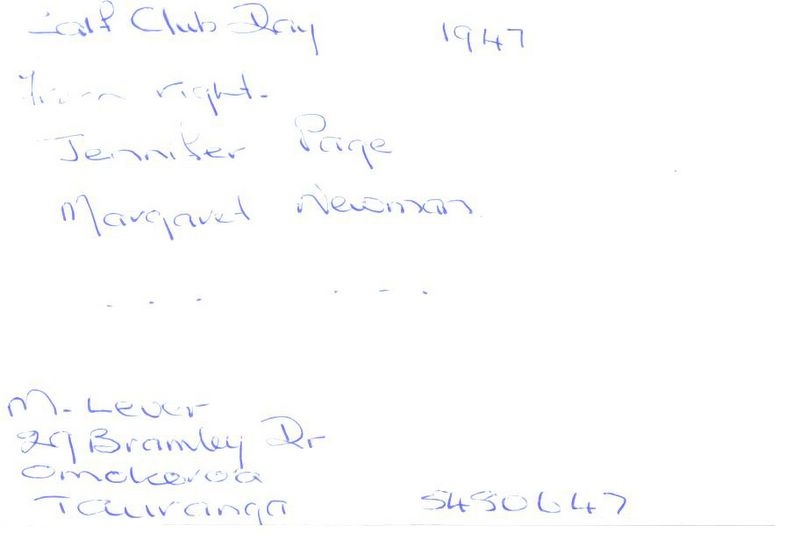 Calf Club Day 1947
From right.
Jennifer Page
Margaret Newman
. . . . . .
M. Lever
29 Bramley Dr
Omokoroa
Tauranga 5480647